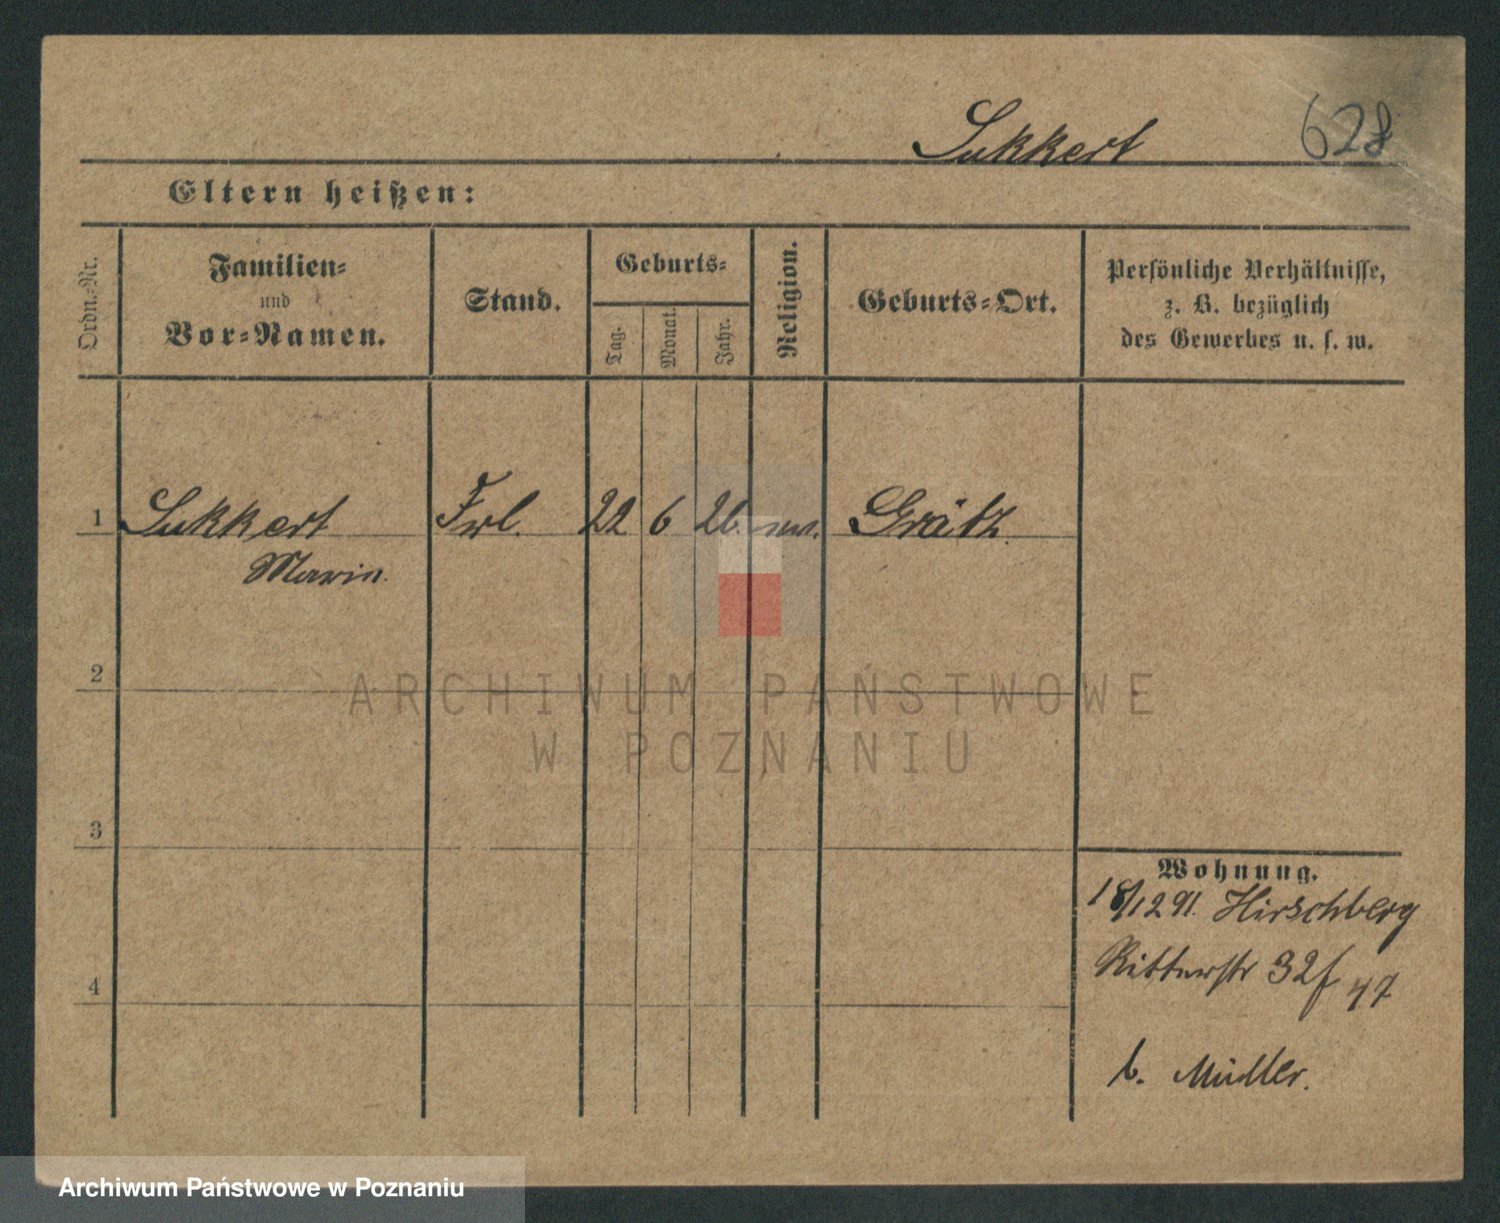 Sukkert 628
Eltern heißen:
Ordn.-Nr.
Familien-
und
Vor-Namen.
Stand.
Geburts-
Tag.
Monat.
Jahr.
Religion.
Geburts-Ort.
Persönliche Verhältnisse,
z. B. bezüglich
des Gewerbes u. s. w.
1 Sukkert Frl. 22 6 26. Grätz.
Marie.
2
ARCHIWUM PAŃSTWOWE
W POZNANIU
3
Wohnung.
18/12 91. Hirschberg
4
Ritterstr 32f
b. Müller.
Archiwum Państwowe w Poznaniu